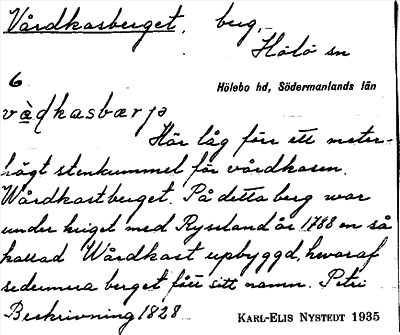 Vårdkasberget, berg,
Hölö sn
6
Hölebo hd, Södermanlands län
vàḍkasbærjə
Här låg förr ett meter-
högt stenkummel för vårdkasen.
Wårdkastberget. På detta berg war
under kriget med Ryssland år 1788 en så
kallad Wårdkast upbyggd, hwaraf
sedermera berget fått sitt namn. Petri
Beskrivning 1828
KARL-ELIS NYSTEDT 1935